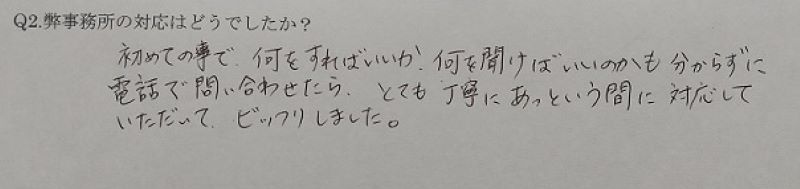 Q2.弊事務所の対応はどうでしたか？
初めての事で、何をすればいいか、何を聞けばいいのかも分からずに
電話で問い合わせたら、とても丁寧にあっという間に対応して
いただいて、ビックリしました。